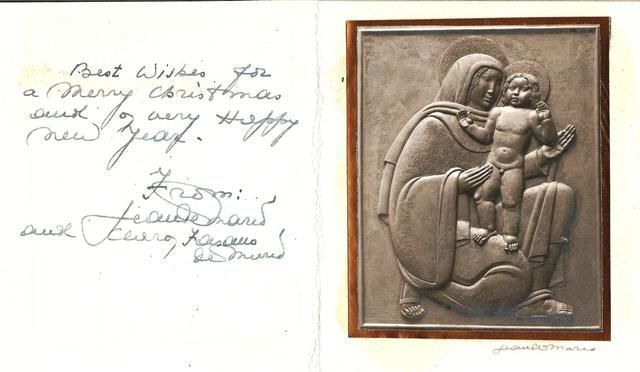 Best Wishes for
a Merry Christmas
and a very Happy
New Year.
From:
Jean de Marco
and Clara, Fasano
de Marco
Jean de Marco